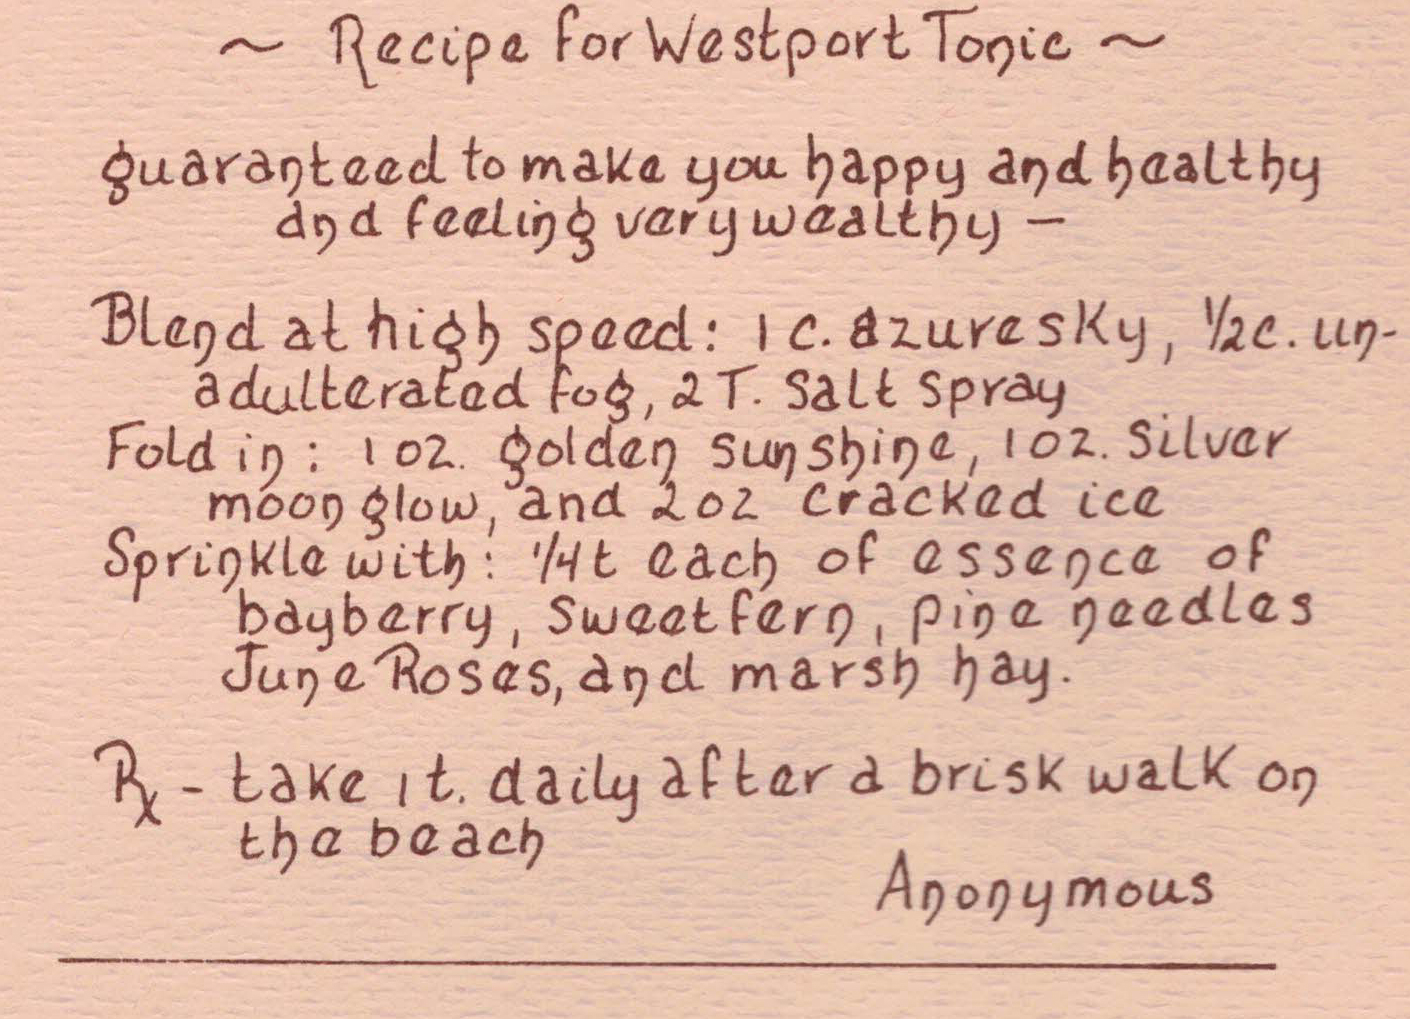 ~ Recipe for Westport Tonic ~
guaranteed to make you happy and healthy
and feeling very wealthy —
Blend at high speed: 1 c. azure sky, 1/2 c. un-
adulterated fog, 2 T. salt spray
Fold in: 1 oz. golden sunshine, 1 oz. silver
moon glow, and 2 oz cracked ice
Sprinkle with: 1/4 t each of essence of
bayberry, sweet fern, pine needles
June Roses, and marsh hay.
Rx - take 1 t. daily after a brisk walk on
the beach
Anonymous